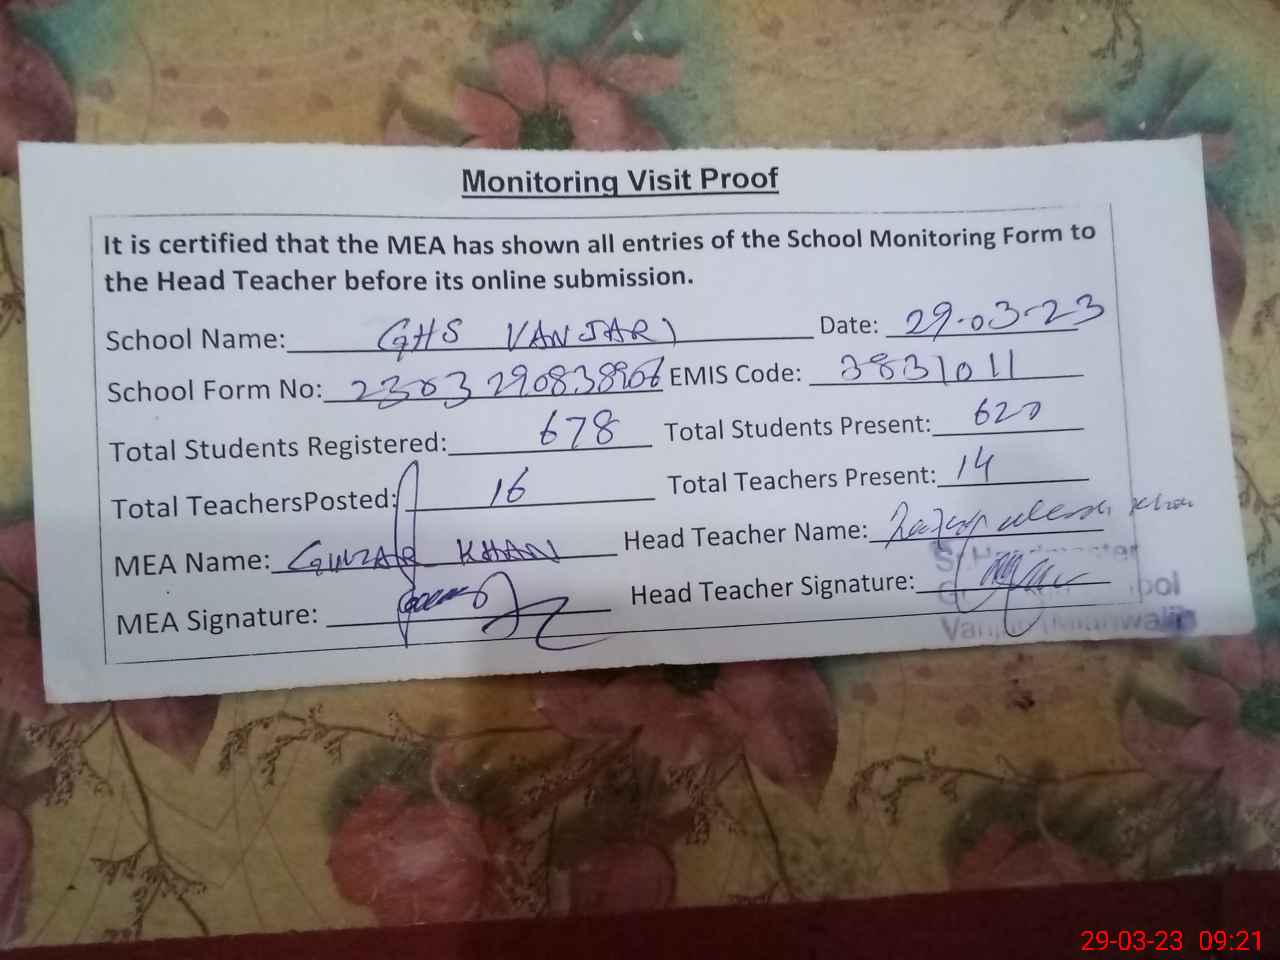 Monitoring Visit Proof
It is certified that the MEA has shown all entries of the School Monitoring Form to
the Head Teacher before its online submission.
School Name: GHS VANJARI Date: 29-03-23
School Form No: 2303290838906 EMIS Code: 3831011
Total Students Registered: 678 Total Students Present: 620
Total TeachersPosted: 16 Total Teachers Present: 14
MEA Name: KHAN Head Teacher Name: Khan
MEA Signature: Head Teacher Signature:
Sr. Headmaster
School
Vanjari (Mianwali)
29-03-23 09:21